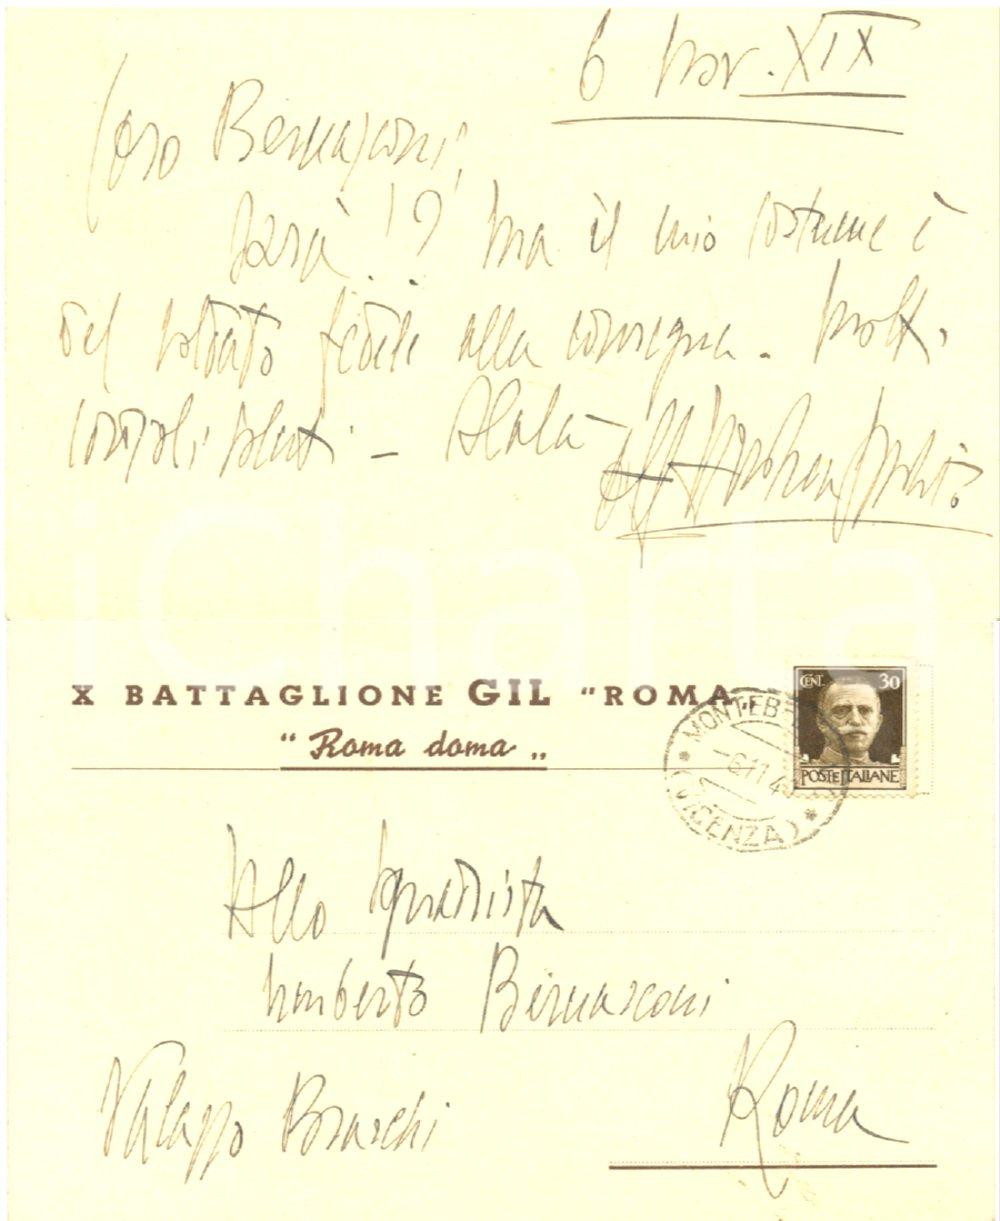 6 Nov. XIX
Caro Bernasconi,
sarà!? Ma il mio costume è
del soldato fedele alla consegna. Molti
cordiali saluti - Alalà
iCharta
X BATTAGLIONE GIL "ROMA"
"Roma doma"
CENT. 30
POSTE ITALIANE
MONTEBE
6 11 4
(VICENZA)
Allo Squadrista
Umberto Bernasconi
Palazzo Braschi
Roma